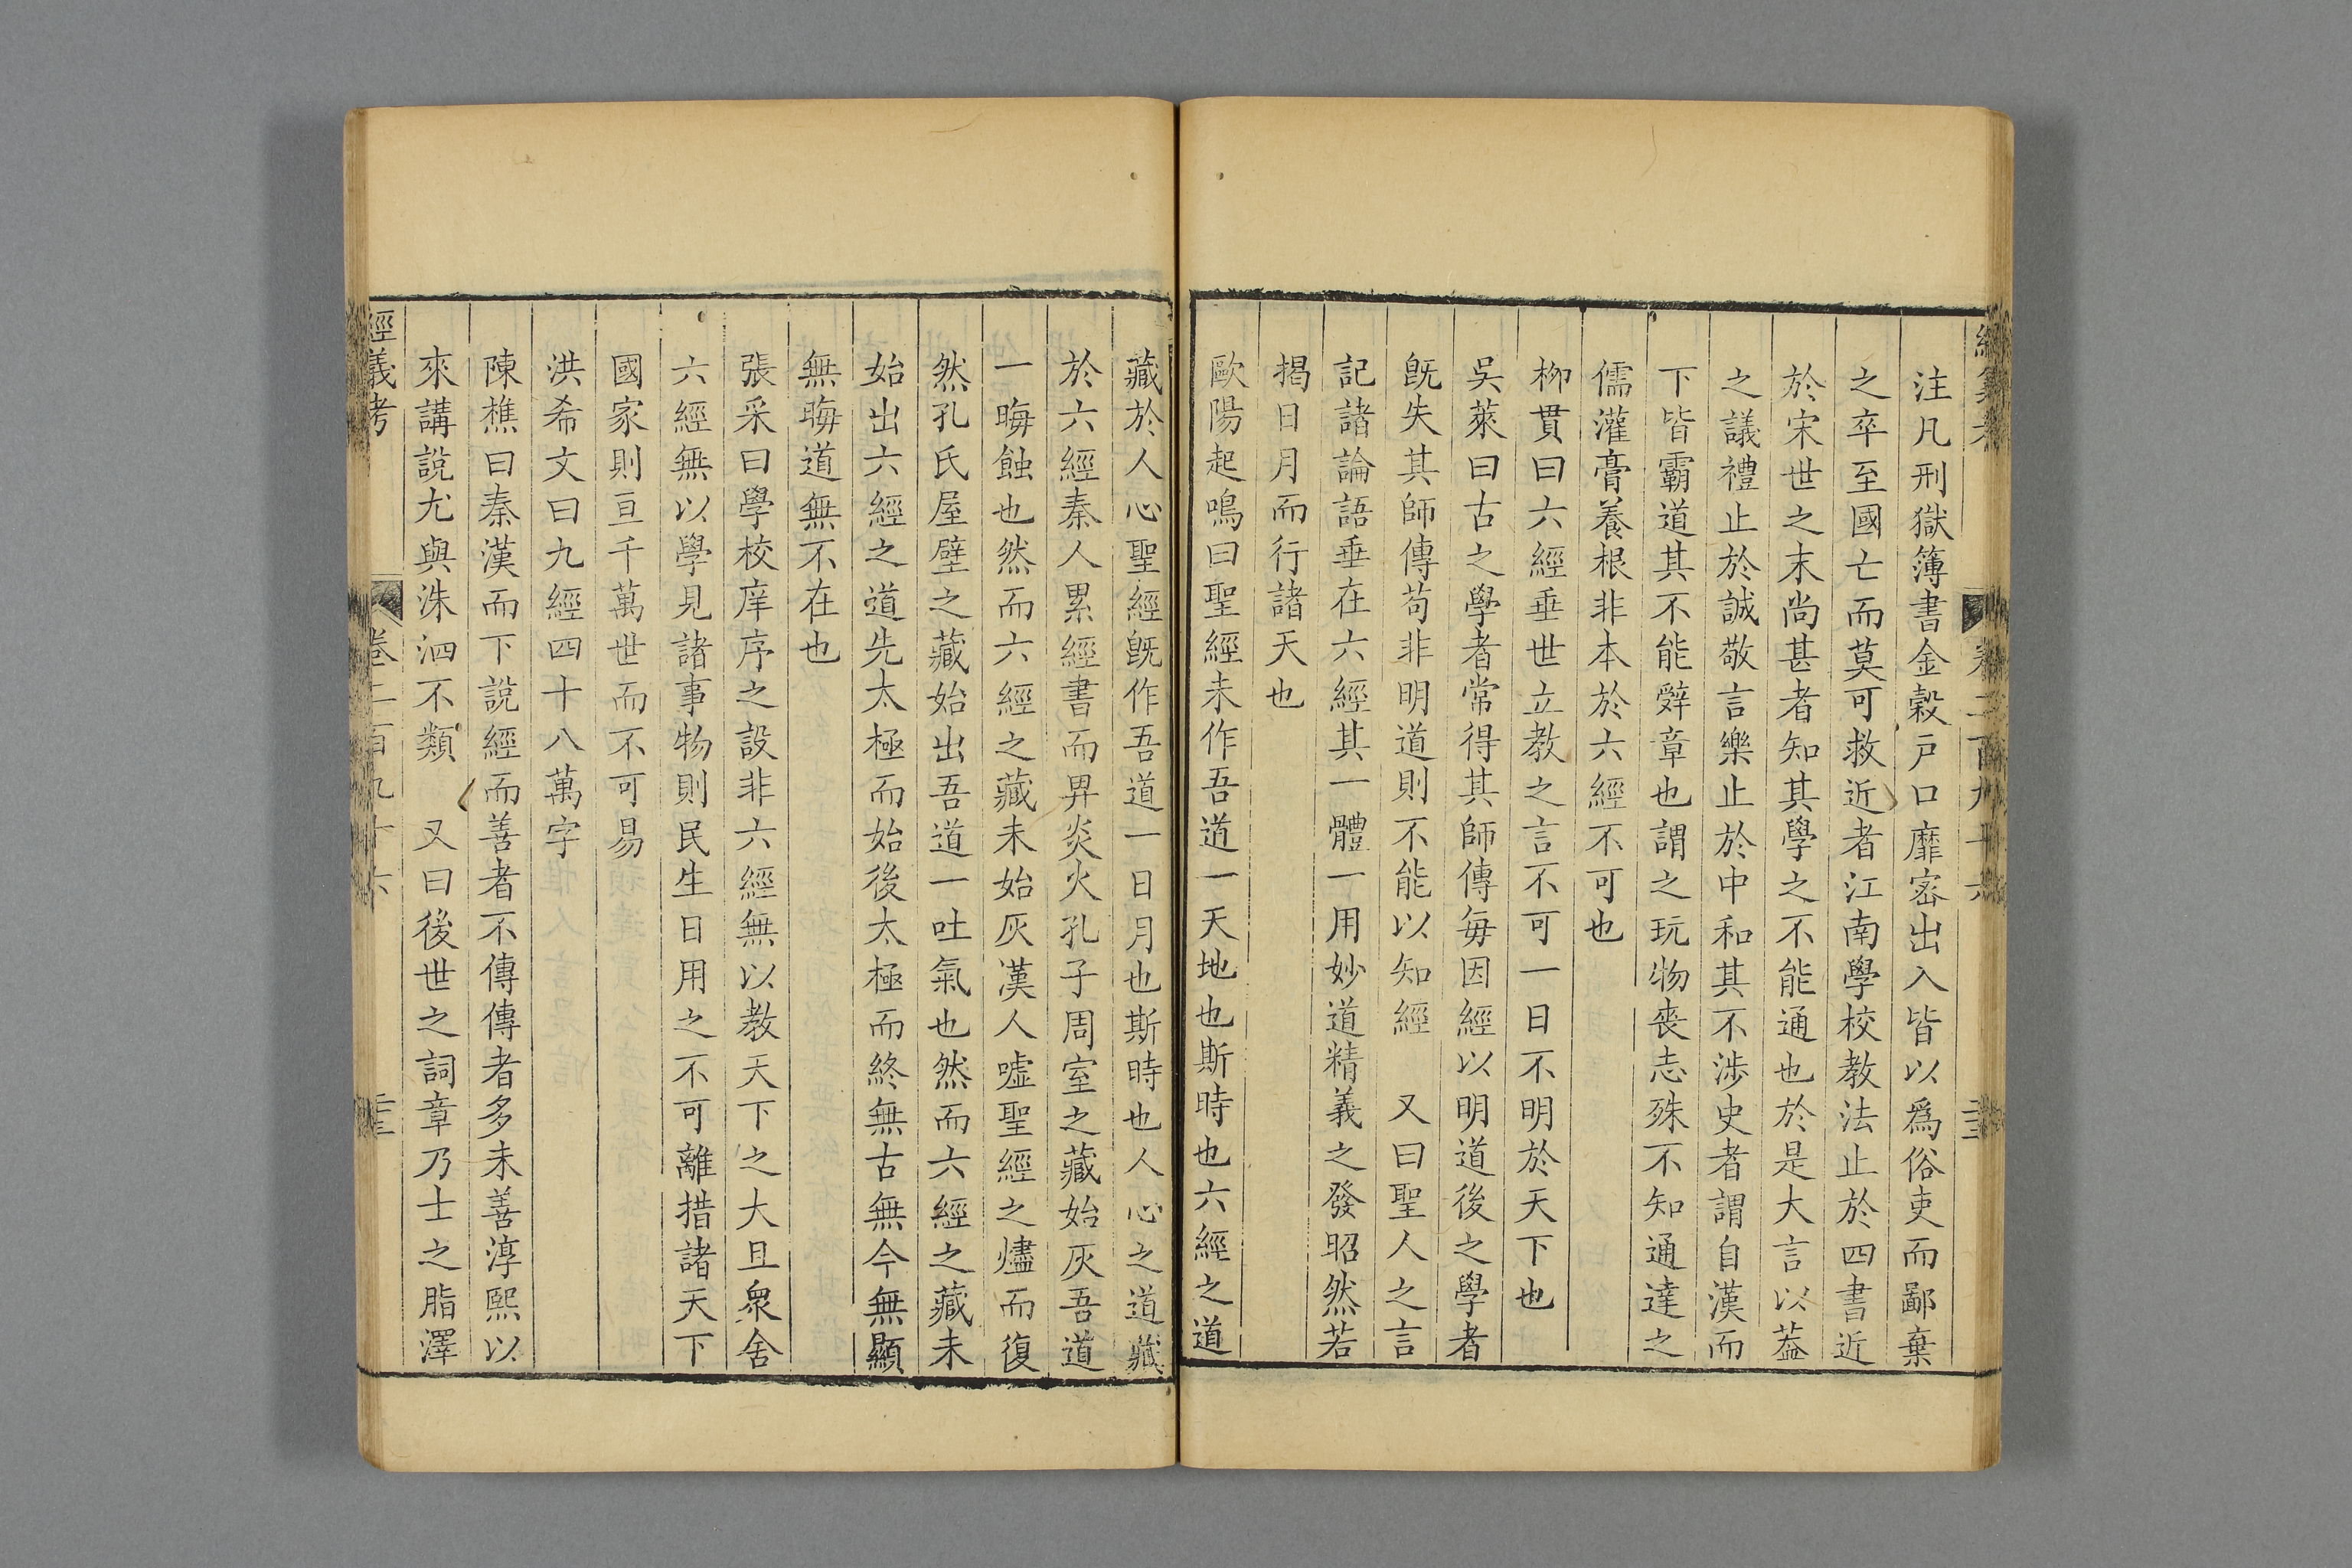 注凡刑獄簿書金穀戸口靡宻出入皆以爲俗吏而鄙棄
之卒至國亡而莫可救近者江南學校教法止於四書近
於宋世之末尚甚者知其學之不能通也於是大言以葢
之議禮止於誠敬言樂止於中和其不涉史者謂自漢而
下皆霸道其不能辤章也謂之玩物喪志殊不知通達之
儒灌膏養根非本於六經不可也
栁貫曰六經垂世立教之言不可一日不明於天下也
吳萊曰古之學者常得其師傳每因經以明道後之學者
旣失其師傳苟非明道則不能以知經　又曰聖人之言
記諸論語垂在六經其一體一用妙道精義之發昭然若
揭日月而行諸天也
歐陽起鳴曰聖經未作吾道一天地也斯時也六經之道
藏於人心聖經旣作吾道一日月也斯時也人心之道藏
於六經秦人累經書而畀炎火孔子周室之藏始灰吾道
一晦蝕也然而六經之藏未始灰漢人嘘聖經之燼而復
然孔氏屋壁之藏始出吾道一吐氣也然而六經之藏未
始出六經之道先太極而始後太極而終無古無今無顯
無晦道無不在也
張采曰學校庠序之設非六經無以教天下之大且衆舍
六經無以學見諸事物則民生日用之不可離措諸天下
國家則亘千萬世而不可易
洪希文曰九經四十八萬字
陳樵曰秦漢而下說經而善者不傳傳者多未善淳熙以
來講說尤與洙泗不類　又曰後世之詞章乃士之脂澤
經義考
卷二百九十六